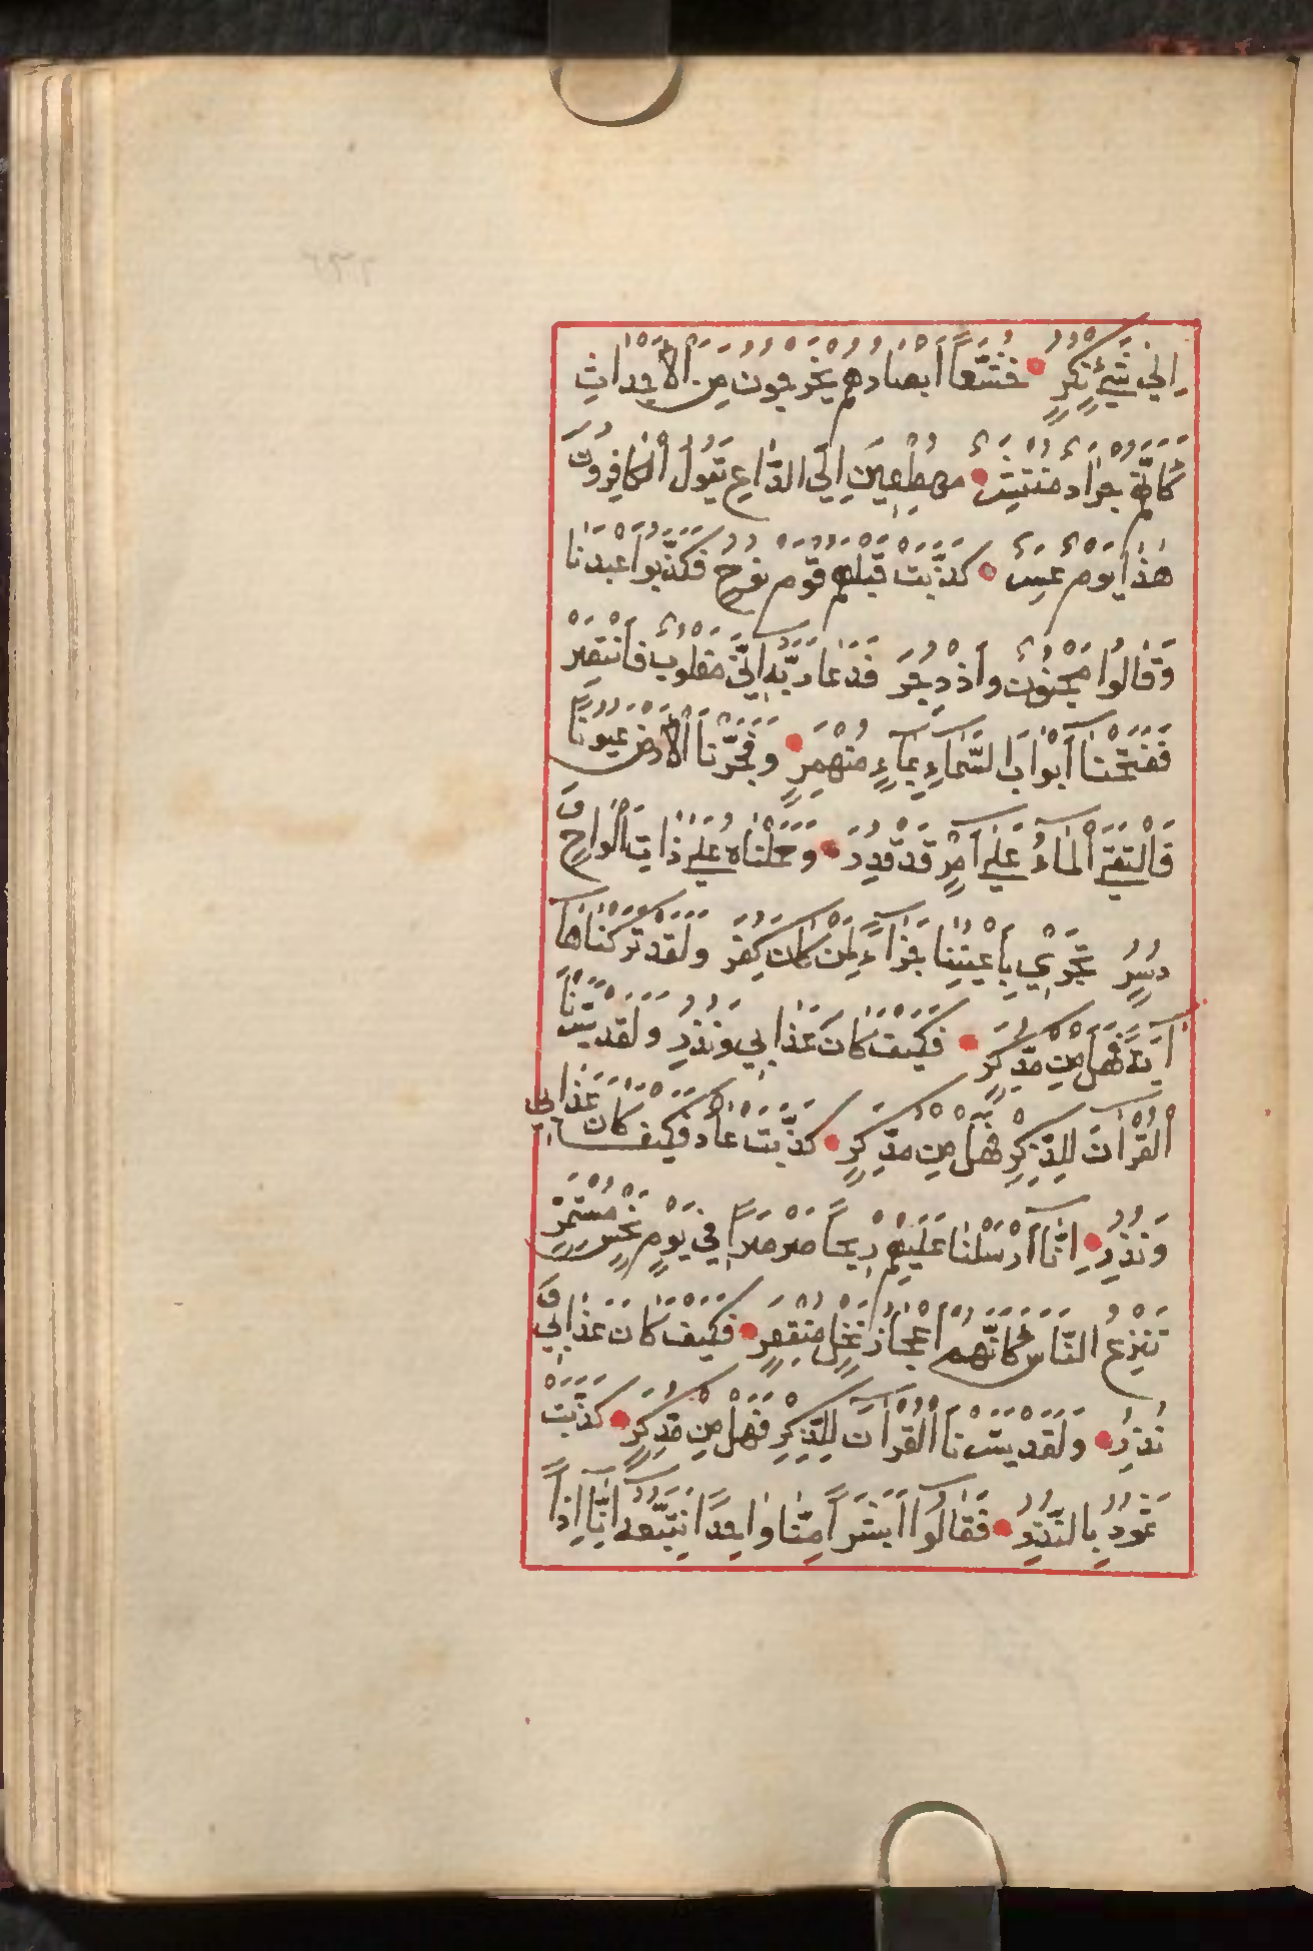 اِلٰي شَيْءٍ نُكُرٍ خُشَّعاً اَبْصَارُهُمْ يَخْرُجُونَ مِنَ الْاَجْدَاثِ
كَاَنَّهُمْ جَرَادٌ مُنْتَشِرٌ مُهْطِعِينَ اِلَي الدَّاعِ يَقُولُ الْكَافِرُونَ
هٰذَا يَوْمٌ عَسِرٌ كَذَّبَتْ قَبْلَهُمْ قَوْمُ نُوحٍ فَكَذَّبُوا عَبْدَنَا
وَقَالُوا مَجْنُونٌ وَازْدُجِرَ فَدَعَا رَبَّهُ اَنِّي مَغْلُوبٌ فَانْتَصِرْ
فَفَتَحْنَا اَبْوَابَ السَّمَاءِ بِمَاءٍ مُنْهَمِرٍ وَفَجَّرْنَا الْاَرْضَ عُيُونًا
فَالْتَقَي الْمَاءُ عَلَي اَمْرٍ قَدْ قُدِرَ وَحَمَلْنَاهُ عَلَي ذَاتِ اَلْوَاحٍ وَ
دُسُرٍ تَجْرِي بِاَعْيُنِنَا جَزَاءً لِمَنْ كَانَ كُفِرَ وَلَقَدْ تَرَكْنَاهَا
آيَةً فَهَلْ مِنْ مُدَّكِرٍ فَكَيْفَ كَانَ عَذَابِي وَنُذُرِ وَلَقَدْ يَسَّرْنَا
الْقُرْآنَ لِلذِّكْرِ فَهَلْ مِنْ مُدَّكِرٍ كَذَّبَتْ عَادٌ فَكَيْفَ كَانَ عَذَابِي
وَنُذُرِ اِنَّا اَرْسَلْنَا عَلَيْهِمْ رِيحاً صَرْصَراً فِي يَوْمِ نَحْسٍ مُسْتَمِرٍّ
تَنْزِعُ النَّاسَ كَاَنَّهُمْ اَعْجَازُ نَخْلٍ مُنْقَعِرٍ فَكَيْفَ كَانَ عَذَابِي وَ
نُذُرِ وَلَقَدْ يَسَّرْنَا الْقُرْآنَ لِلذِّكْرِ فَهَلْ مِنْ مُدَّكِرٍ كَذَّبَتْ
ثَمُودُ بِالنُّذُرِ فَقَالُوا اَبَشَراً مِنَّا وَاحِداً نَتَّبِعُهُ اِنَّا اِذاً